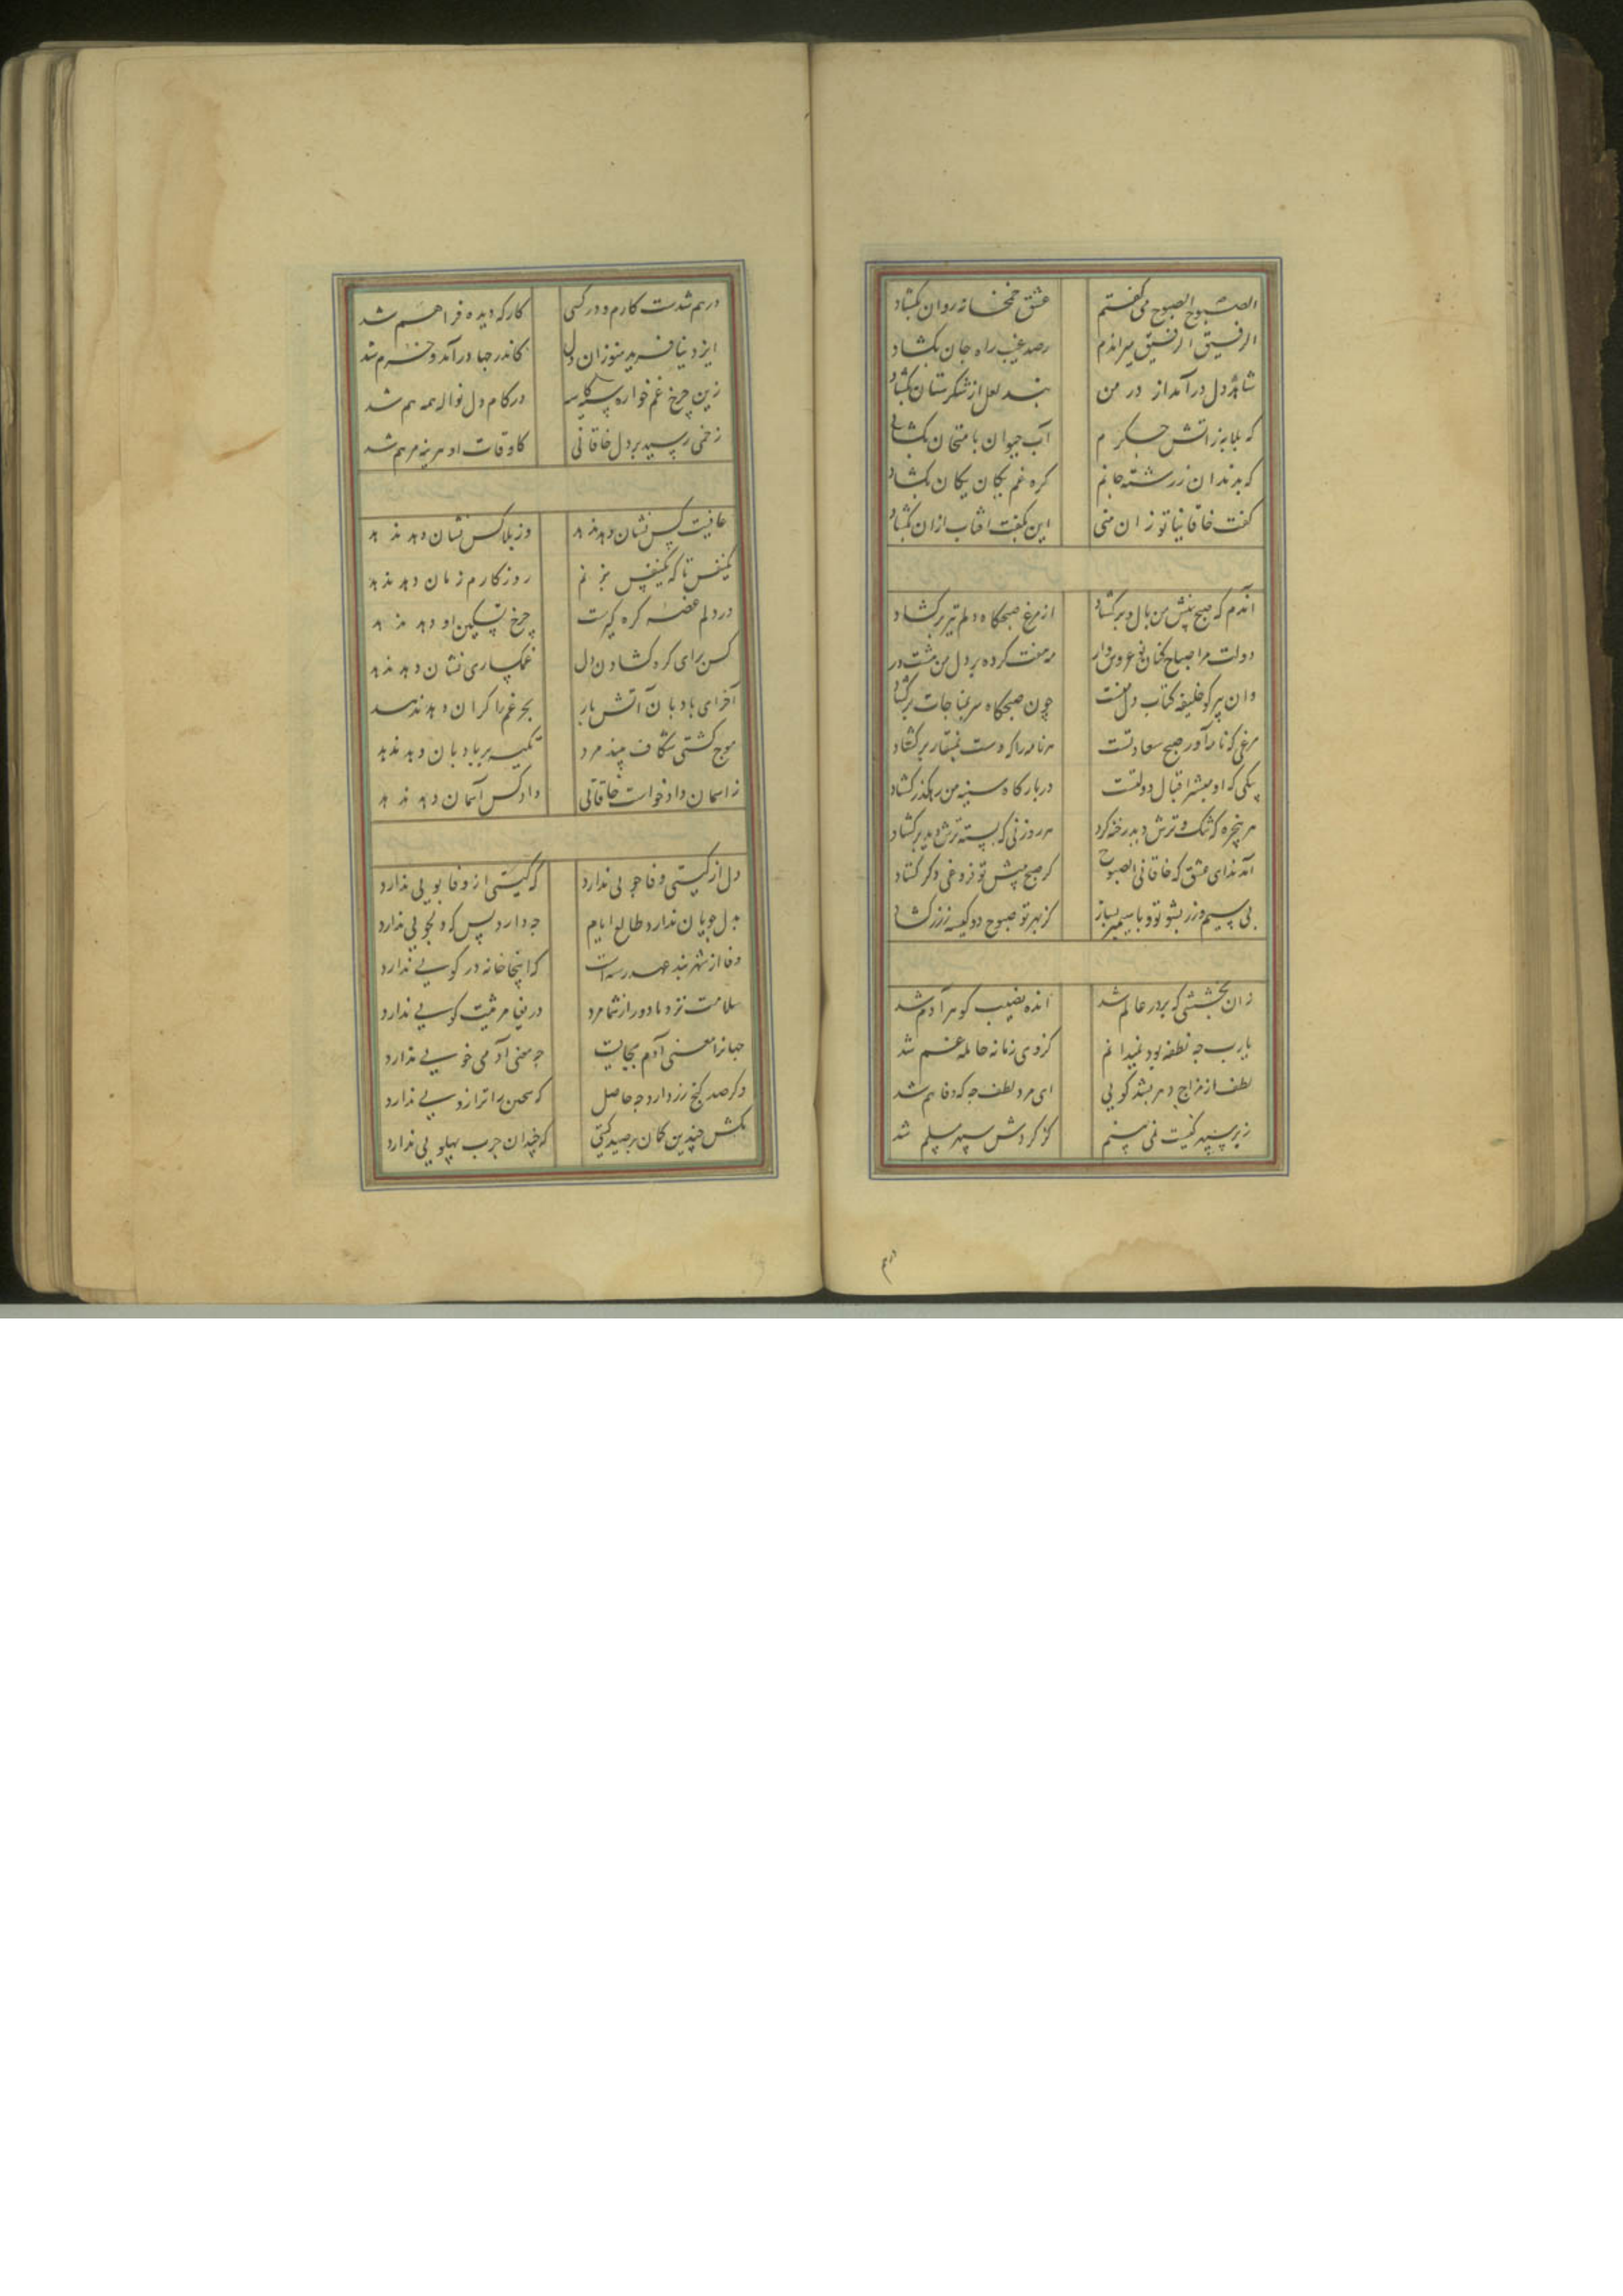 الصبوح الصبوح می کفتم عشق خمخانه روان بکشاد
الرفیق الرفیق میراندم رصد غیب راه جان بکشاد
شاهد دل درآمد از در من بند لعل از شکرستان بکشاد
که بلابه ز آتش جکرم آب حیوان بامتحان بکشاد
که بدندان ز رشته جانم کره غم یکان یکان بکشاد
کفت خاقانیا تو زان منی این بکفت آفتاب ازان بکشاد
آندم که صبح بینش من بال و بر کشاد از مرغ صبحکاه دلم تیز بر کشاد
دولت مرا صباح کنان نو عروس وار هر هفت کرده بر دل من هشت در
وان پیر کو خلیفه کتاب دل منست چون صبحکاه سر بمناجات بر کشاد
مرغی که نامه آور صبح سعادتست هر نامه را که دست بمنقار بر کشاد
پیکی که او مبشر اقبال دولتست در بارکاه سینه من رهکذر کشاد
هر پنجره که تنک و ترش دید رخنه کرد هر روزنی که بسته ترش دید بر کشاد
آمد ندای عشق که خاقانی الصبوح کز صبح پیش تو فروغی دکر کشاد
بی سیم و زر بشو تو و با سیمبر بساز کز بهر تو صبوح دو کیسه ز زر کشاد
زان بخششی که بر در عالم شد انده نصیب کوهر آدم شد
یارب چه نطفه بود نمیدانم کز وی زمانه حامله غم شد
لطف از مزاج دهر بشد کویی ای مرد لطف چه که وفا هم شد
زیر سپهر کیست نمی بینم کز کردش سپهر مسلم شد
درهم
درهم شدست کارم و در کیتی کار که دیده فراهم شد
ایزد نیافرید هنوز آن دل کاندر جهان درآمد و خرم شد
زین چرخ غم خواره سیه کاسه در کام دل نواله همه هم شد
زخمی رسید بر دل خاقانی کاوقات او هزینه مرهم شد
عافیت کس نشان دهد ندهد وز بلا کس نشان دهد ندهد
یکنفس تا که یکنفس بزنم روزکارم زمان دهد ندهد
در دلم غصه کره کیرست چرخ تسکین او دهد ندهد
کس برای کره کشادن دل غمکساری نشان دهد ندهد
آخر ای بادبان آتش بار بحر غم را کران دهد ندهد
موج کشتی شکاف بیند مرد تکیه بر بادبان دهد ندهد
ز آسمان داد خواست خاقانی داد کس آسمان دهد ندهد
دل از کیتی وفا جویی ندارد که کیتی از وفا بویی ندارد
بدل جویان ندارد طالع ایام چه دارد پس که دلجویی ندارد
وفا از شهربند عهد رسته است که اینجا خانه در کویی ندارد
سلامت نزد ما دور از شما مرد دریغا مرثیت کویی ندارد
جهانرا معنی آدم بجایست چه معنی آدمی خویی ندارد
وکر صد کنج زر دارد چه حاصل که سختن را ترازویی ندارد
مکش چندین کمان بر صید کیتی که چندان چرب پهلویی ندارد